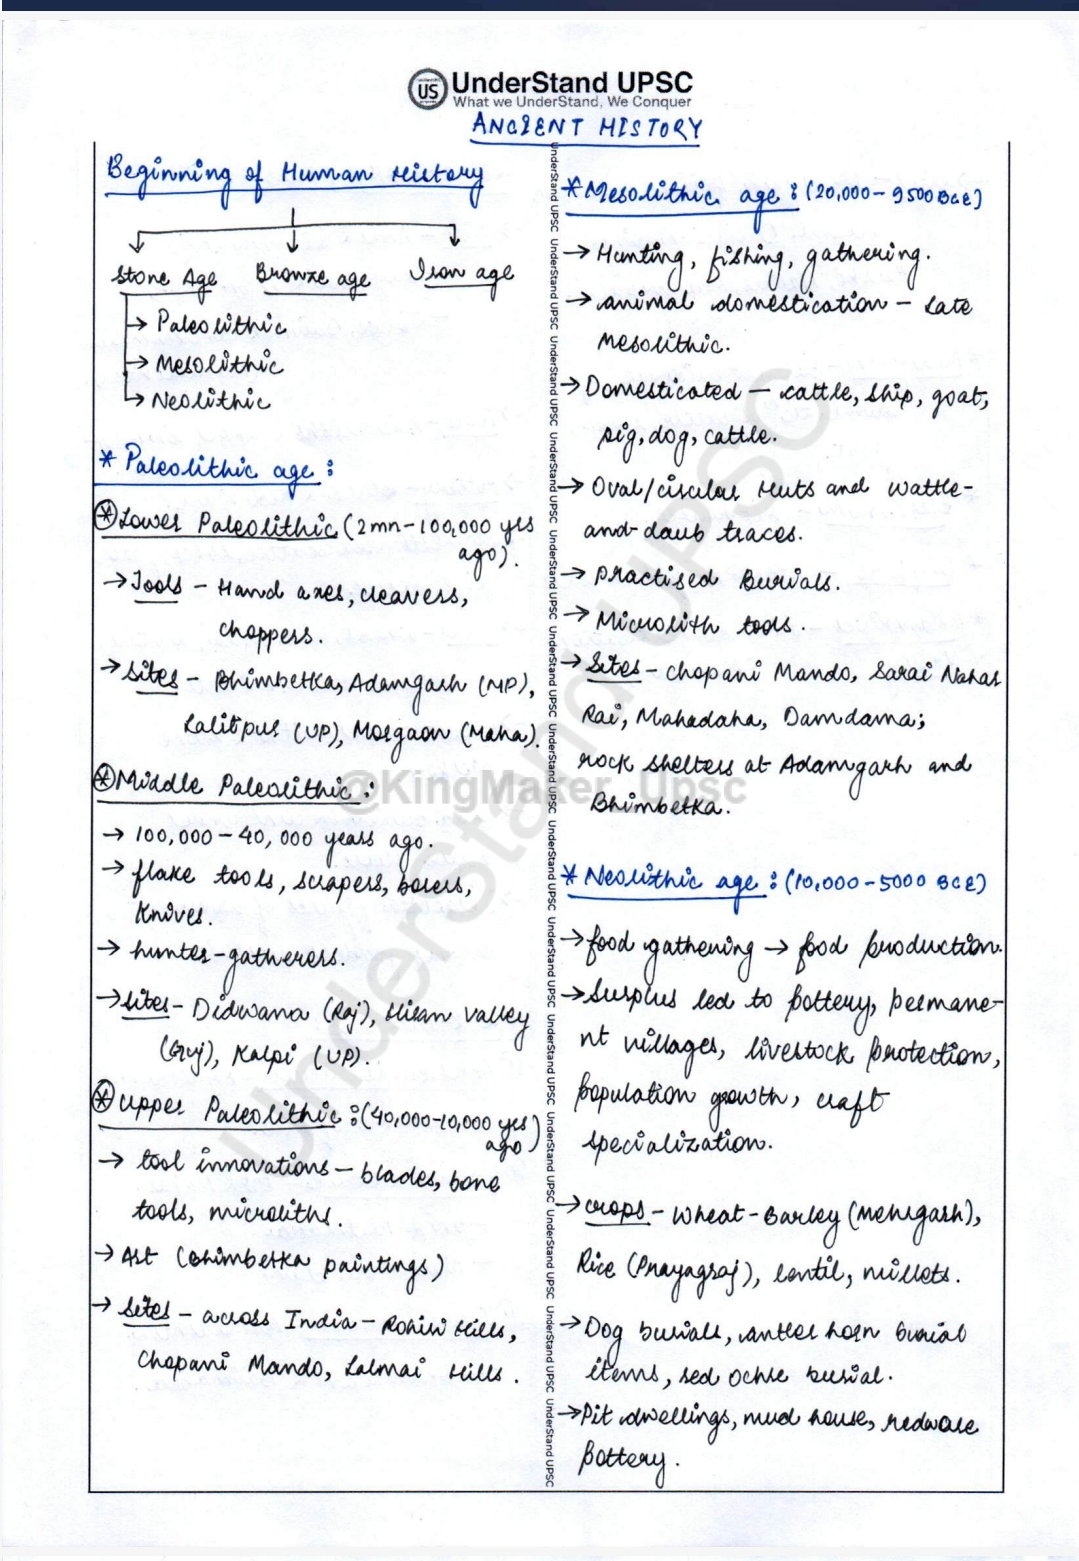 UnderStand UPSC
What we UnderStand, We Conquer
ANCIENT HISTORY
Beginning of Human History
Stone Age Bronze age Iron age
→ Paleolithic
→ Mesolithic
→ Neolithic
* Paleolithic age :
* Lower Paleolithic (2mn-100,000 yrs
ago).
→ Tools - Hand axes, cleavers,
choppers.
→ Sites - Bhimbetka, Adamgarh (MP),
Lalitpur (UP), Morgaon (Maha).
* Middle Paleolithic :
→ 100,000 – 40,000 years ago.
→ flake tools, scrapers, borers,
Knives.
→ hunter-gatherers.
→ Sites - Didwana (Raj), Hiran valley
(Guj), Kalpi (UP).
* Upper Paleolithic : (40,000-10,000 yrs
ago)
→ tool innovations – blades, bone
tools, microliths.
→ Art (Bhimbetka paintings)
→ Sites – across India – Rohiri Hills,
Chopani Mando, Lalmai Hills.
* Mesolithic age : (20,000 – 9500 BCE)
→ Hunting, fishing, gathering.
→ animal domestication – Late
Mesolithic.
→ Domesticated – cattle, ship, goat,
pig, dog, cattle.
→ Oval/circular Huts and wattle-
and-daub traces.
→ practised Burials.
→ Microlith tools.
→ Sites - Chopani Mando, Sarai Nahar
Rai, Mahadaha, Damdama;
rock shelters at Adamgarh and
Bhimbetka.
* Neolithic age : (10,000 – 5000 BCE)
→ food gathering → food production.
→ Surplus led to pottery, permane-
nt villages, livestock protection,
population growth, craft
specialization.
→ crops - Wheat-Barley (Mehrgarh),
Rice (Prayagraj), lentil, millets.
→ Dog burials, antler horn burial
items, red ochre burial.
→ Pit dwellings, mud house, redware
pottery.
@KingMaker_Upsc
UnderStand UPSC